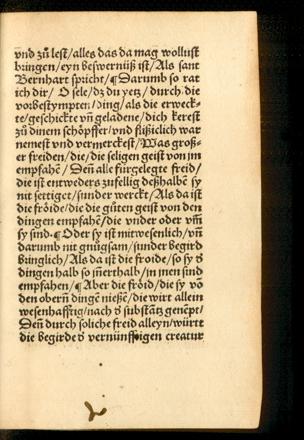 vnd zů lest/alles das da mag wollust
bringen/eyn beswernüß ist/Als sant
Bernhart spricht/¶Darumb so rat
ich dir/O sele/dz du yetz/durch die
vorbestympten/ding/als die erweck-
te/geschickte vn̄ geladene/dich kerest
zů dinem schöpffer/vnd flißiclich war
nemest vnd vermerckest/Was groß-
er freiden/die/die seligen geist von im
empfahē/Deñ alle fürgelegte freid/
die ist entweders zufellig deßhalbē sy
nit settiget/sunder werckt/Als da ist
die fröide/die die gůten geist von den
dingen empfahē/die vnder oder vm̄
sy sind.¶Oder sy ist mitwesenlich/vn̄
darumb nit gnůgsam/sunder begird
bringlich/Als da ist die froide/so sy vō
dingen halb so jnerthalb/in jnen sind
empfahen/¶Aber die fröid/die sy vō
den obern̄ dingē nießē/die wirt allein
wesenhafftig/nach der substātz genēpt/
Deñ durch soliche freid alleyn/würt
die begirde der vernünfftigen creatur